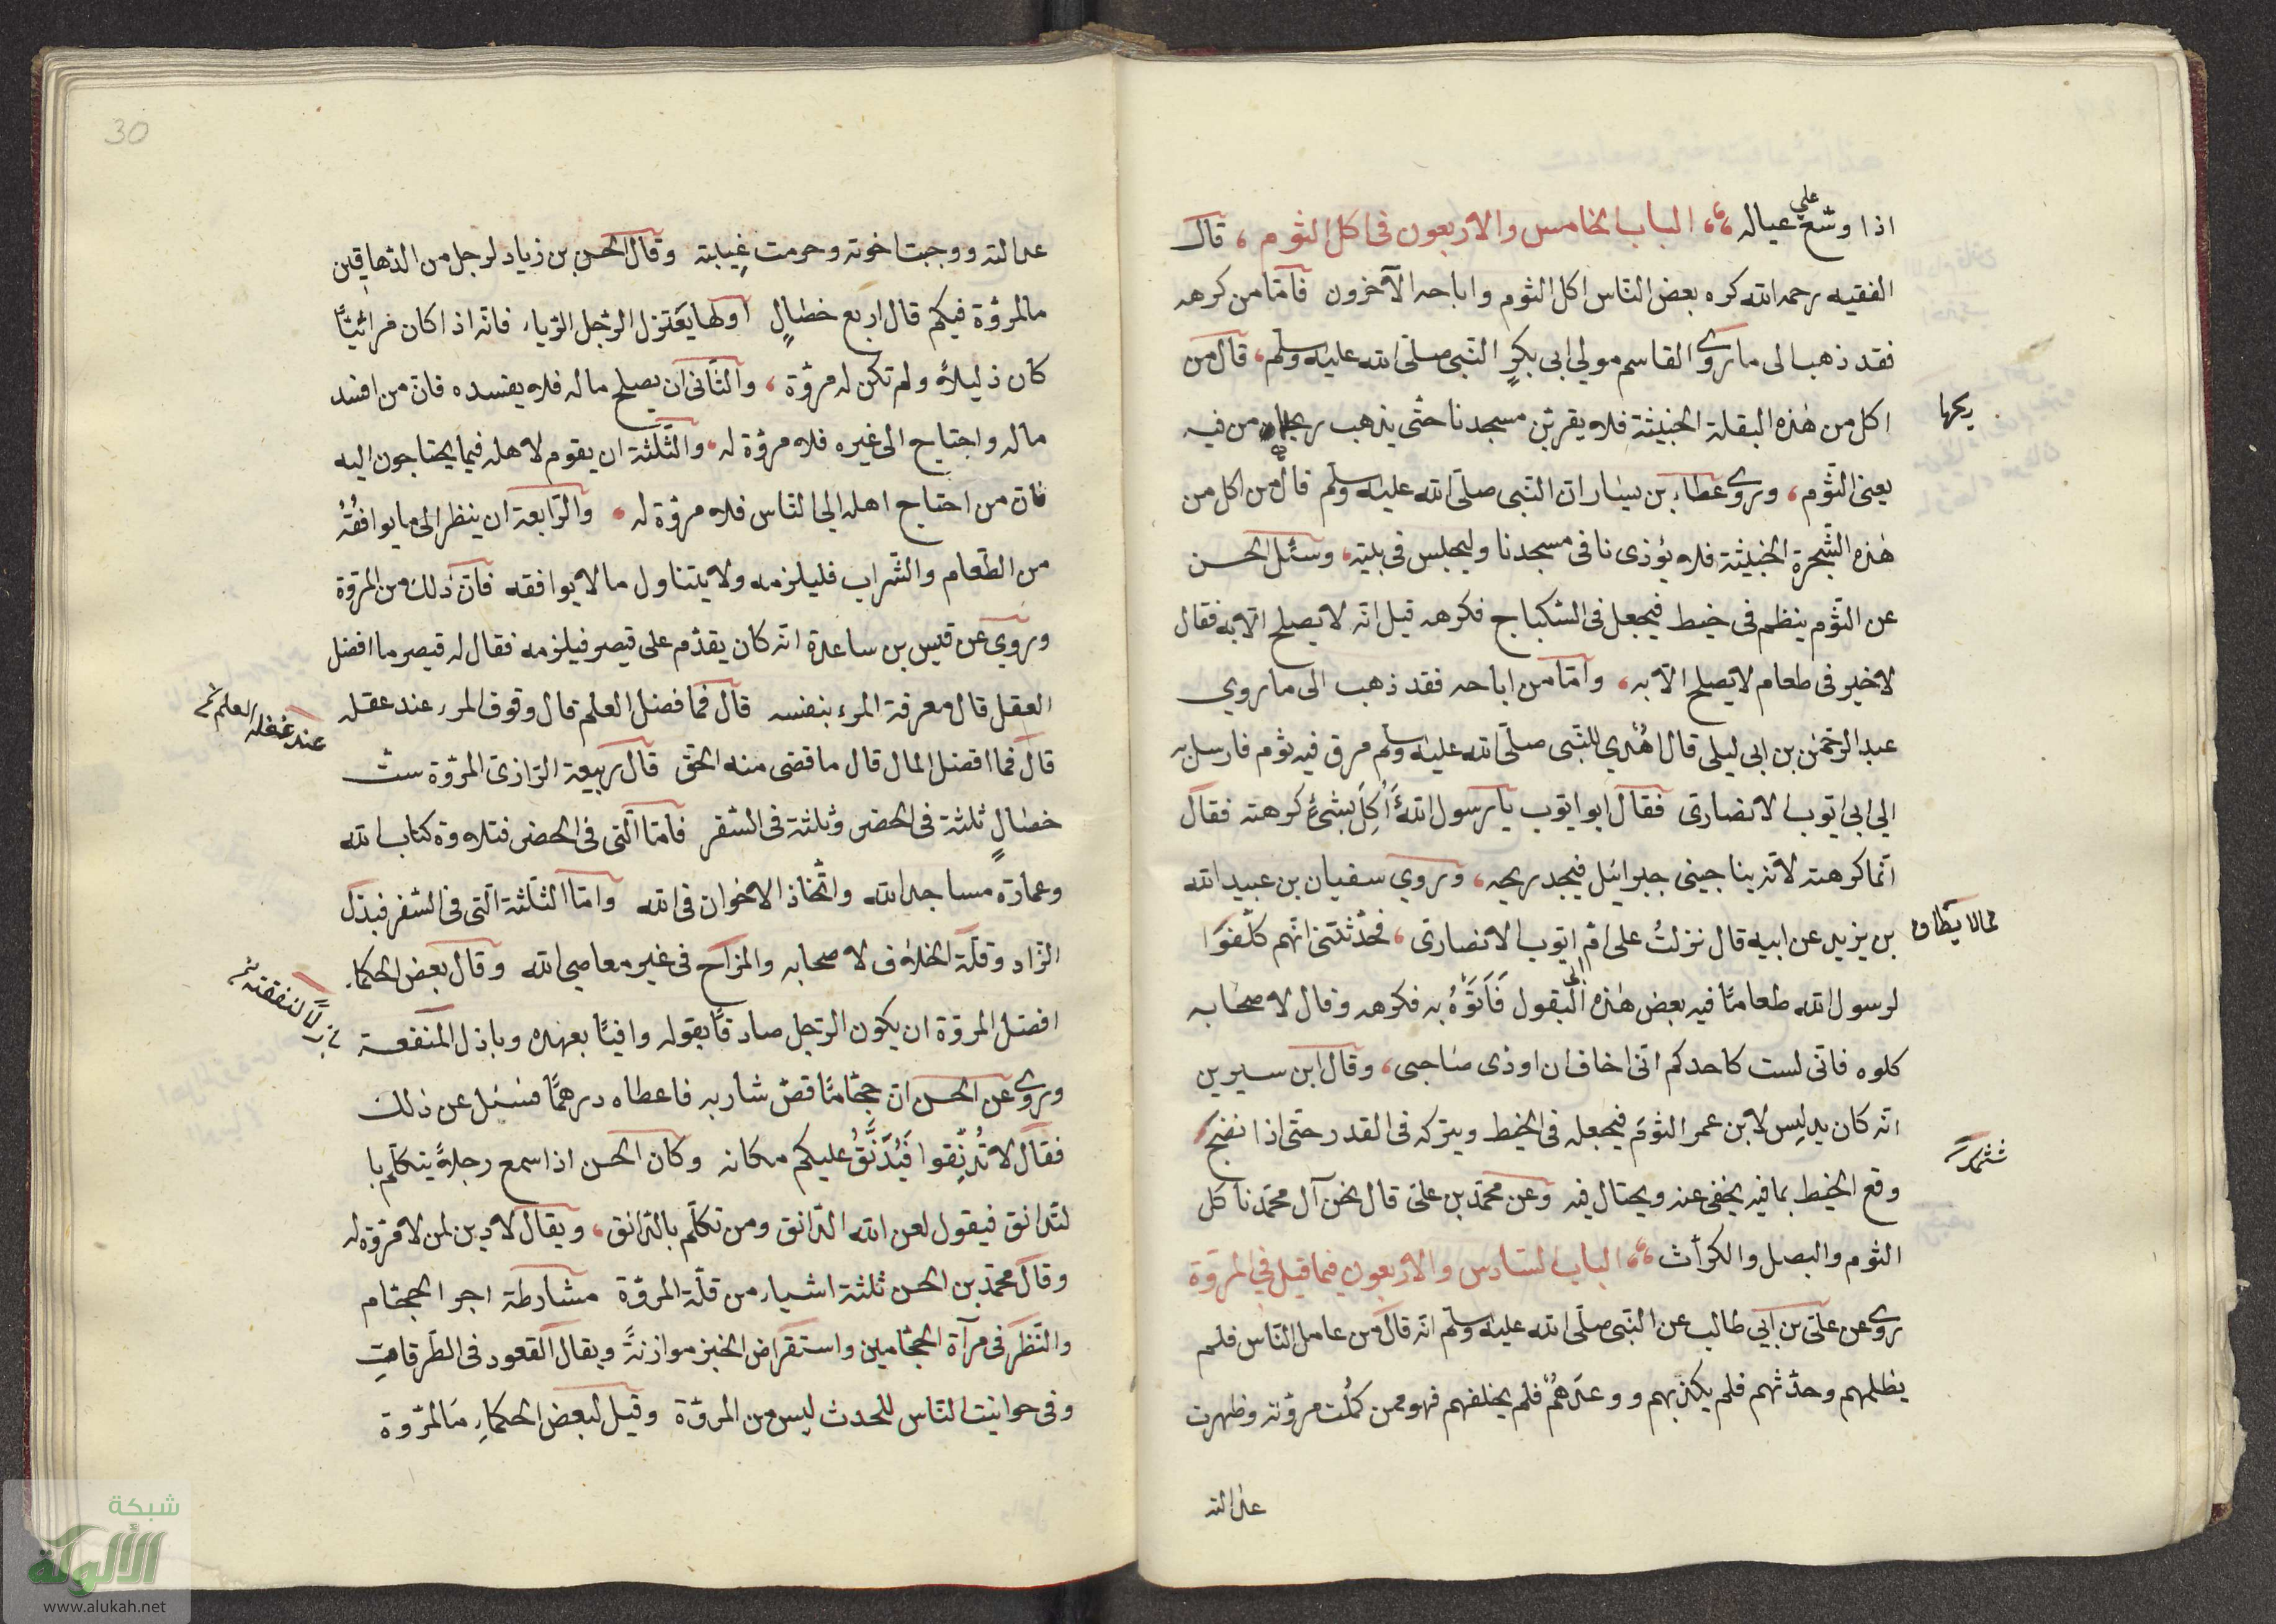 اذا وسّع علي عياله الباب الخامس والاربعون فى اكل الثوم قال
الفقيه رحمه الله كره بعض النّاس اكل الثوم واباحه الآخرون فامّا من كرهه
فقد ذهب الى ما روى القاسم مولي ابى بكرٍ النّبى صلّى الله عليه وسلم قال من
اكل من هٰذه البقلة الخبيثة فلا يقربنّ مسجدنا حتّى يذهب ريحها من فيه
ريحها
يعنى الثّوم وروى عطاء بن يسار انّ النّبى صلّى الله عليه وسلّم قال من اكل من
هٰذه الشّجرة الخبيثة فلا يؤذى نا فى مسجدنا وليجلس فى بيته وسئل الحسن
عن الثّوم ينظم فى خيط فيجعل فى السّكباج فكرهه قيل انّه لا يصلح الّا به فقال
لا خير فى طعام لا يصلح الّا به وامّا من اباحه فقد ذهب الى ما روي
عبد الرّحمٰن بن ابى ليلى قال اُهْدِي للنّبى صلّى الله عليه وسلم مرق فيه ثوم فارسل به
الي ابى ايّوب الانصارى فقال ابو ايّوب يا رسول الله أَكِلَ بشئٍ كرهته فقال
انّما كرهته لانّه يناجينى جبرائيل فيجد ريحه وروي سفيان بن عبيد الله
بن يزيد عن ابيه قال نزلتُ على امّ ايّوب الانصارى فحدّثتنى انّهم كلّفوا
لرسول الله طعامًا فيه بعض هٰذه البُقول فَاَتَوْهُ به فكرهه وقال لاصحابه
كلوه فانّى لست كاحدكم انّى اخاف ان اوذى صاحبى وقال ابن سيرين
انّه كان يدلس لابن عمر الثوم فيجعله فى الخيط ويتركه فى القدر حتى اذا نضج
وقع الخيط بما فيه يخفى عنه ويحتال فيه وعن محمّد بن علىّ قال نحن آل محمّد ناكل
الثوم والبصل والكرّاث الباب السّادس والاربعون فيما قيل في المروّة
روى عن علىّ بن ابي طالب عن النّبى صلّى الله عليه وسلّم انّه قال من عامل النّاس فلم
يظلمهم وحدّثهم فلم يكذبهم ووعدهُمْ فلم يخلفهم فهو ممن كملت مروّته وظهرت
عدالته
30
عدالته ووجبت اخوته وحرمت غيبته وقال الحسن بن زياد لرجل من الدّهاقين
ما المروّة فيكم قال اربع خصالٍ اولها يعتزل الرّجل الرّياء فانّه اذا كان مرائيًا
كان ذليلاً ولم تكن له مروّة والثّانى ان يصلح ماله فلا يفسده فانّ من افسد
ماله واحتياج الى غيره فلا مروّة له والثّلثة ان يقوم لاهله فيما يحتاجون اليه
فانّ من احتاج اهله الى النّاس فلا مروّة له والرّابعة ان ينظر الى ما يوافقُهُ
من الطّعام والشّراب فليلزمه ولا يتناول ما لا يوافقه فانّ ذلك من المروّة
وروي عن قيس بن ساعدة انّه كان يقدّم على قيصر فيلزمه فقال له قيصر ما افضل
العقل قال معرفة المرء بنفسه قال فما فضل العلم قال وقوف المرء عند عقله
قال فما افضل المال قال ما قضى منه الحقّ قال ربيعة الرّازىّ المروّة ستّ
خصالٍ ثلثة فى الحضر وثلثة فى السّفر فامّا الّتى فى الحضر فتلاوة كتاب الله
وعمارة مساجد الله واتّخاذ الاخوان فى الله وامّا الثّلثة الّتى فى السّفر فبذل
الزّاد وقلّة الخلاف لاصحابه والمزاح فى غير معاصى الله وقال بعض الحكماء
افضل المروّة ان يكون الرّجل صادقًا بقوله وافيًا بعهده وباذل المنفعة
وروى عن الحسن انّ حجّامًا قصّ شاربه فاعطاه درهمًا فسئل عن ذلك
فقال لا تُدَنِّقوا فَيُدَنَّقُ عليكم مكانه وكان الحسن اذا سمع رجلاً يتكلّم با
لدّرانق فيقول لعن الله الدّرانق ومن تكلّم بالدّرانق ويقال لا دين لمن لا مروّة له
وقال محمّد بن الحسن ثلثة اشياء من قلّة المروّة مشارطة اجر الحجّام
والنّظر فى مرآة الحجّامين واستقراض الخبز موازنةً ويقال القعود فى الطّرقات
وفى حوانيت النّاس للحدث ليس من المروّة وقيل لبعض الحكماء ما المروّة
شبكة
الألوكة
www.alukah.net